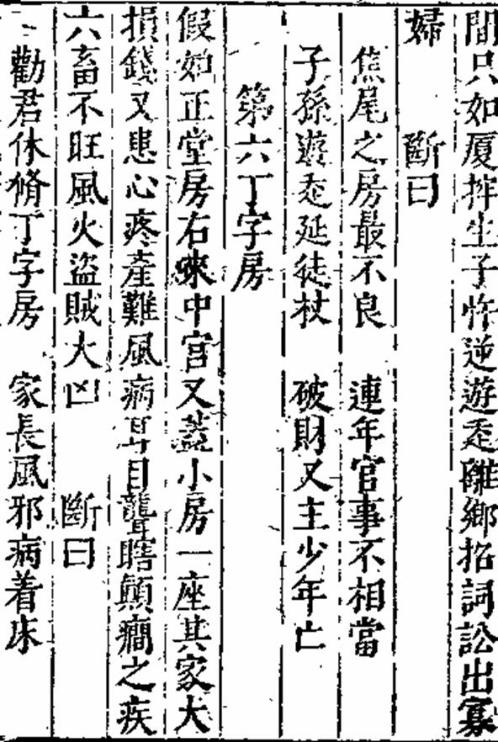 間只如厦摔生子忤逆遊赱離鄉招詞訟出寡
婦　斷曰
焦尾之房最不良　連年官事不相當
子孫遊赱延徒杖　破財又主少年亡
第六丁字房
假如正堂房右來中宮又蓋小房一座其家大
損錢又患心疼產難風病耳目聾瞎顛癇之疾
六畜不旺風火盜賊大凶　斷曰
勸君休脩丁字房　家長風邪病着床